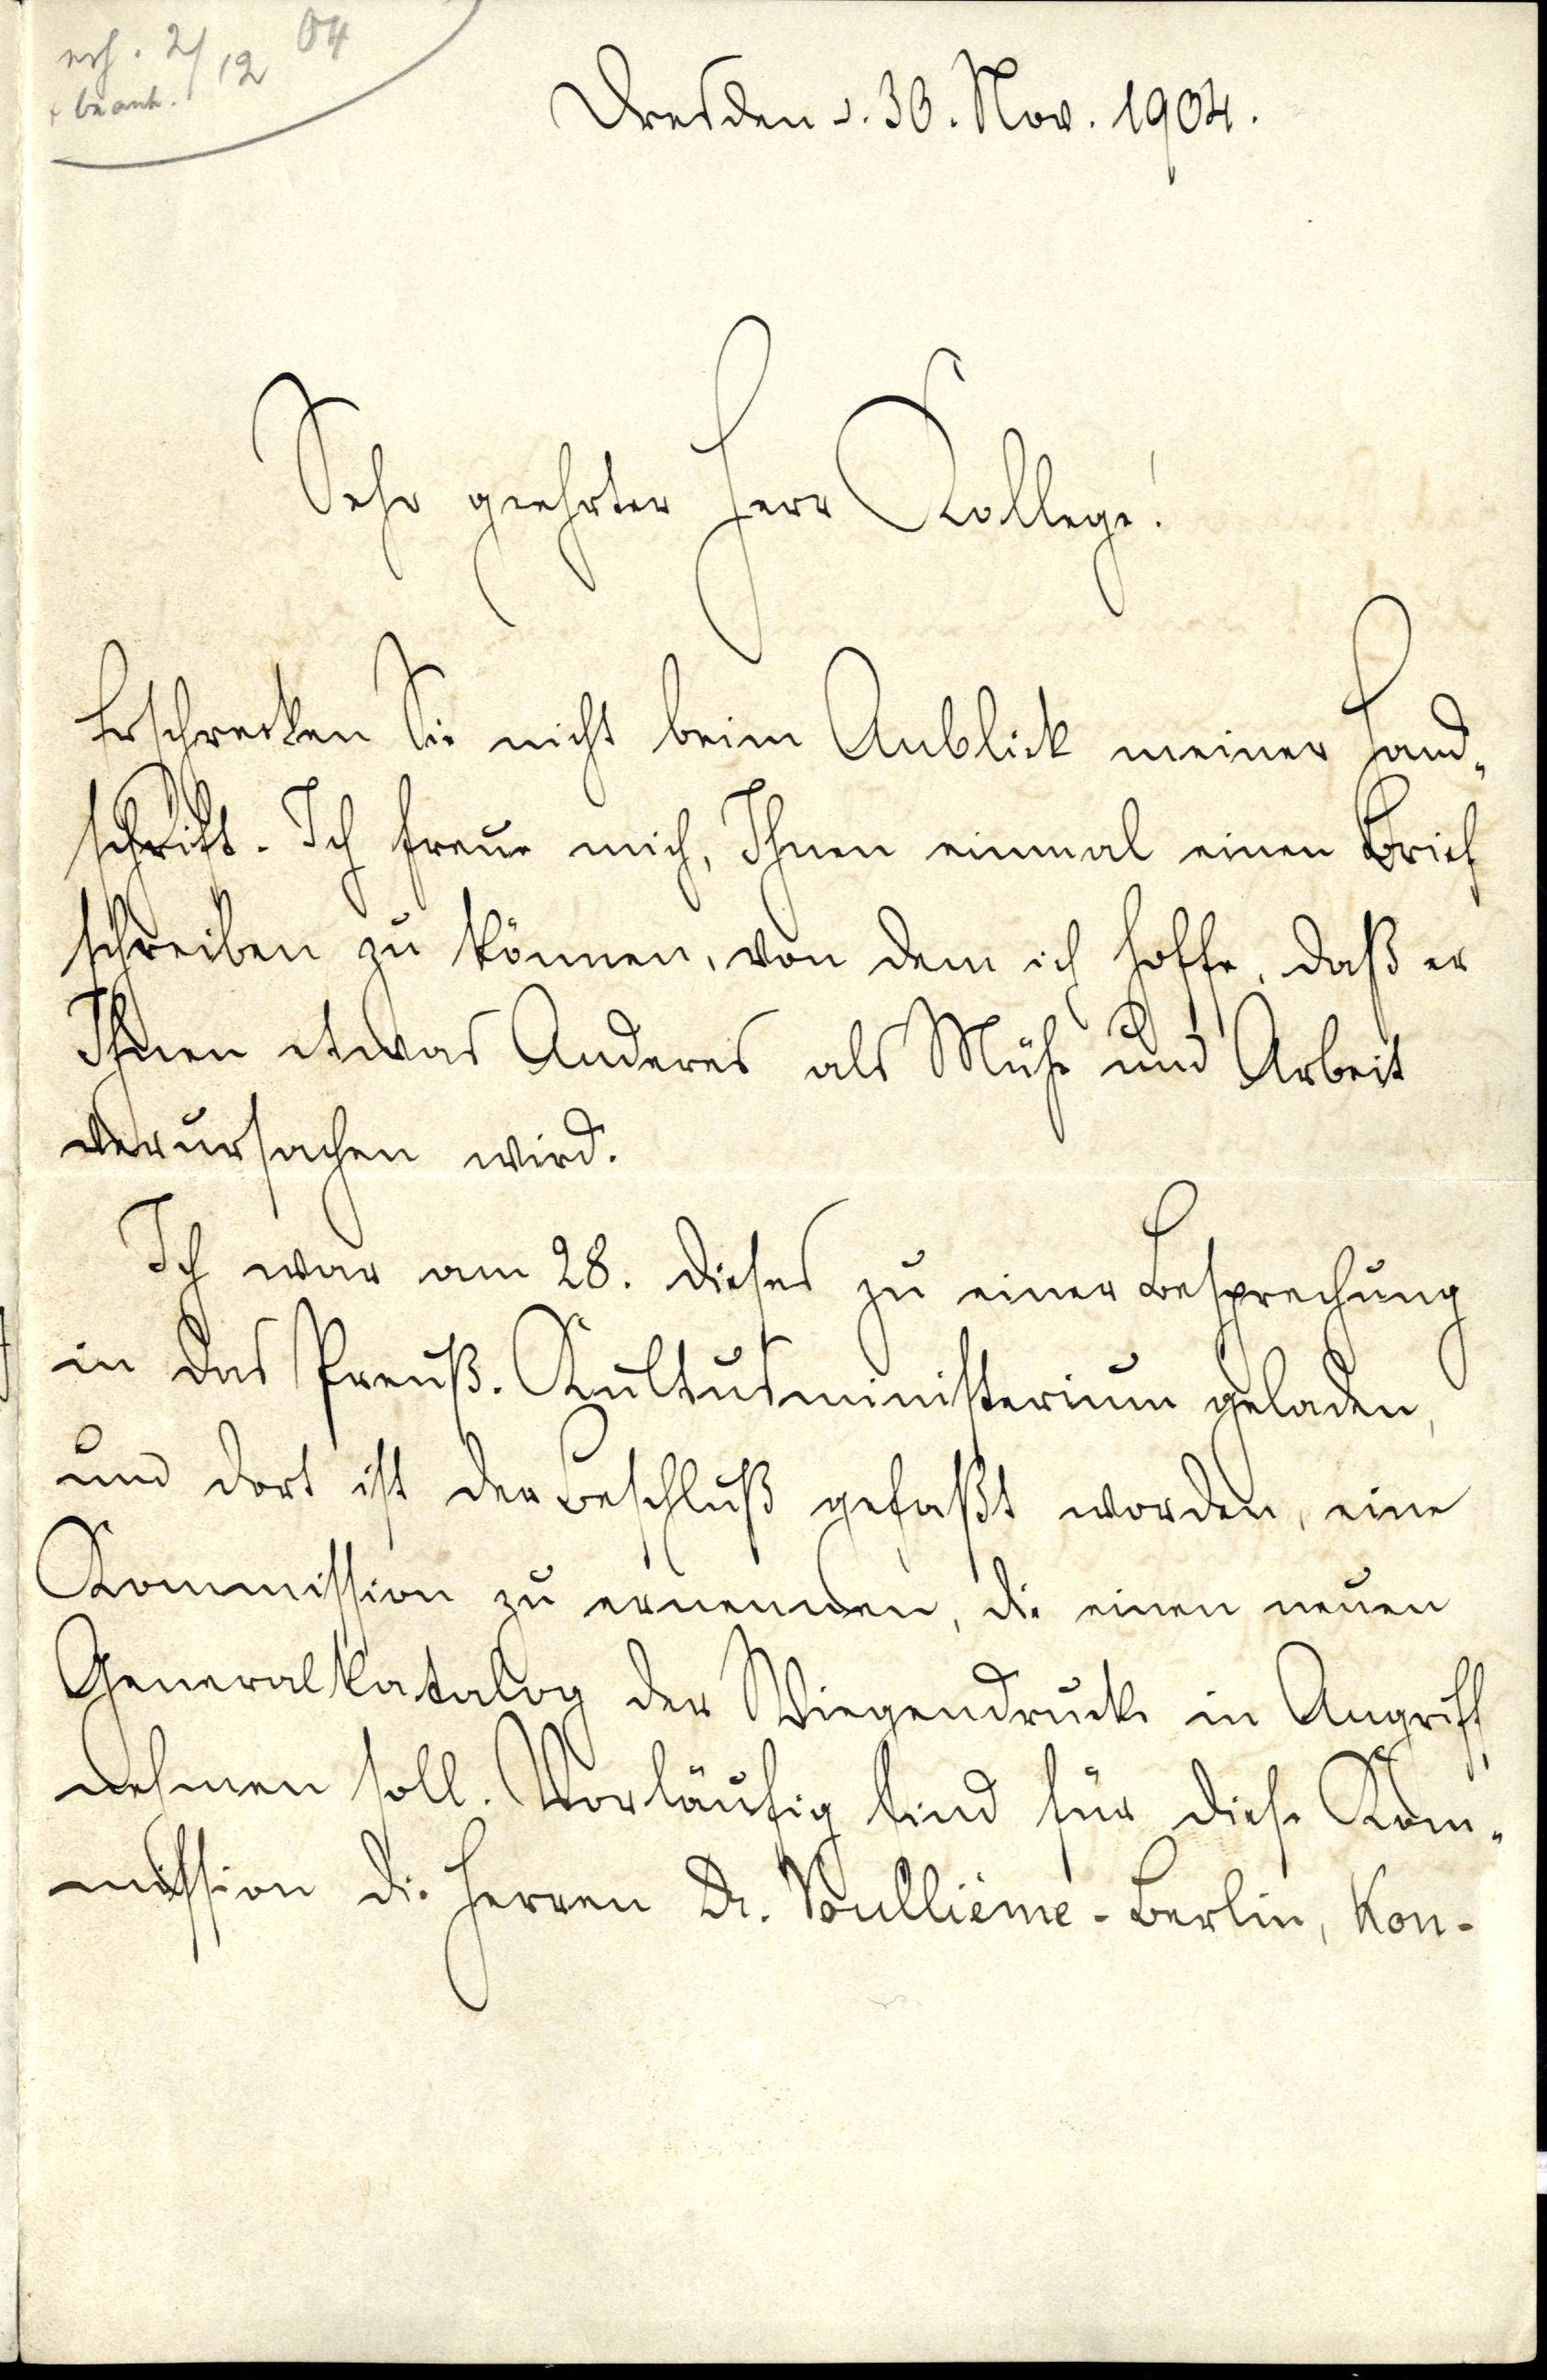 erh. 2/12 04
+ beant.
Dresden d. 30. Nov. 1904.
Sehr geehrter Herr Kollege!
Erschrecken Sie nicht beim Anblick meiner Hand-
schrift. Ich freue mich, Ihnen einmal einen Brief
schreiben zu können, von dem ich hoffe, daß er
Ihnen etwas Anderes als Mühe und Arbeit
verursachen wird.
Ich war am 28. dieses zu einer Besprechung
in das Preuß. Kultusministerium geladen,
und dort ist der Beschluß gefaßt worden, eine
Kommission zu ernennen, die einen neuen
Generalkatalog der Wiegendrucke in Angriff
nehmen soll. Vorläufig sind für diese Kom-
mission die Herren Dr. Voulliéme-Berlin, Kon-